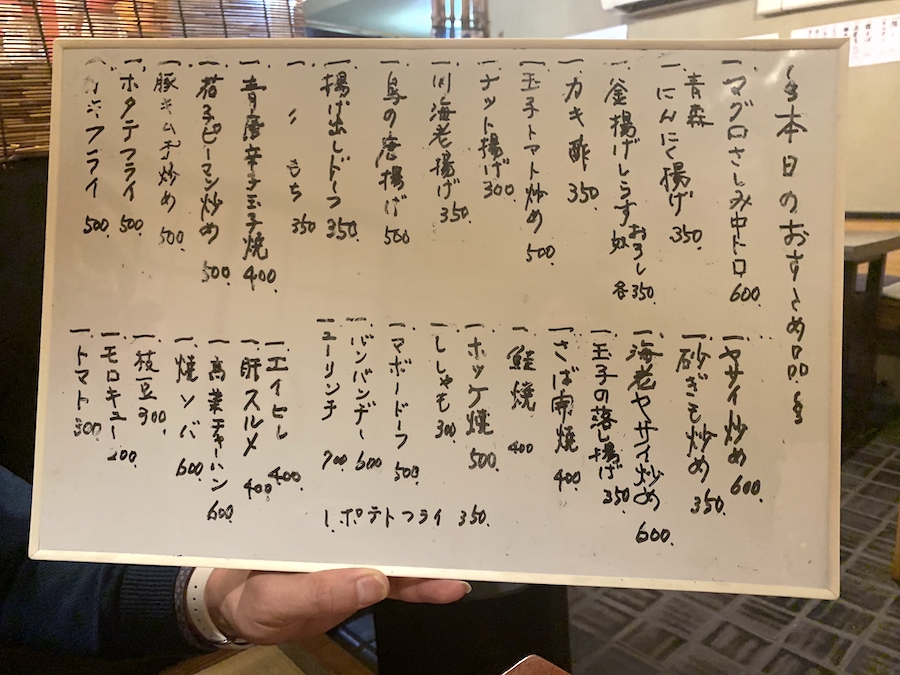 本日のおすすめ品
一.マグロさしみ中トロ 600.
一.青森にんにく揚げ 350.
一.釜揚げしらす おろし 奴 各350.
一.カキ酢 350.
一.玉子トマト炒め 500.
一.ナット揚げ 300
一.川海老揚げ 350.
一.鳥の唐揚げ 500
一.揚げ出しドーフ 350.
一.〃 もち 350
一.青唐辛子玉子焼 400.
一.茄子ピーマン炒め 500.
一.豚キムチ炒め 500.
一.ホタテフライ 500.
フライ 500.
一.ヤサイ炒め 600.
一.砂ぎも炒め 350.
一.海老ヤサイ炒め 600.
一.玉子の落し揚げ 350.
一.さば焼 400.
一.鮭焼 400
一.ホッケ焼 500.
一.ししゃも 300.
一.マボードーフ 500.
一.バンバンヂー 600
一.ユーリンチ 700.
一.エイヒレ 400.
一.肝スルメ 400
一.高菜チャーハン 600.
一.焼ソバ 600.
一.枝豆 300.
一.モロキュー 200.
一.トマト 300.
一.ポテトフライ 350.